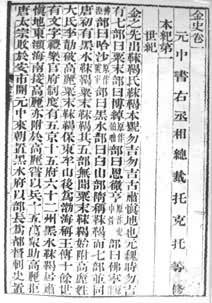 金史卷
元中書右丞相總裁托克托等修
本紀第一
世紀
金之先出靺鞨氏靺鞨本號勿吉勿吉古肅慎地也元魏時勿
吉有七部曰粟末部曰博綽部曰恩徹亨部曰佛寧
部曰哈沙部曰黑水部曰白山部隋稱靺鞨而七部並同
唐初有黑水靺鞨粟末靺鞨其五部無聞粟末靺鞨始附高麗姓
大氏李勣破高麗粟末靺鞨保東牟山後為渤海稱王傳十餘世
有文字禮樂官府制度有五京十五府六十二州黑水靺鞨居肅
慎地東瀕海南接高麗亦附於高麗嘗以兵十五萬眾助高麗拒
唐太宗敗於安市開元中來朝置黑水府以部長為都督刺史置